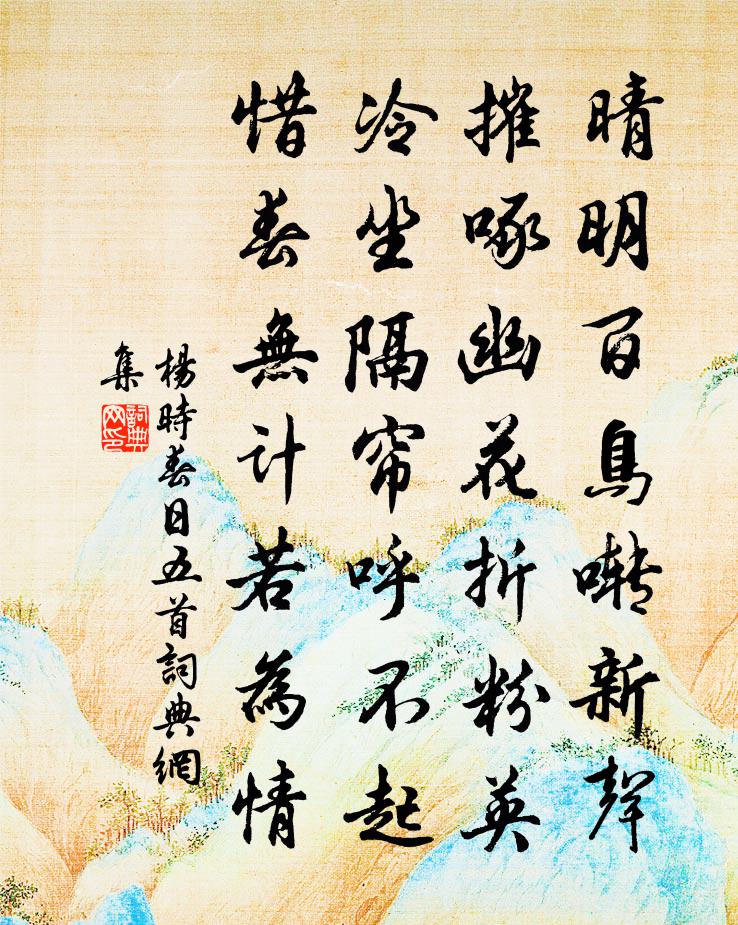 晴明百鳥囀新聲
摧啄幽花折粉英
冷坐隔帘呼不起
惜春無計若為情
楊時春日五首詞典網
集
詞典
网印